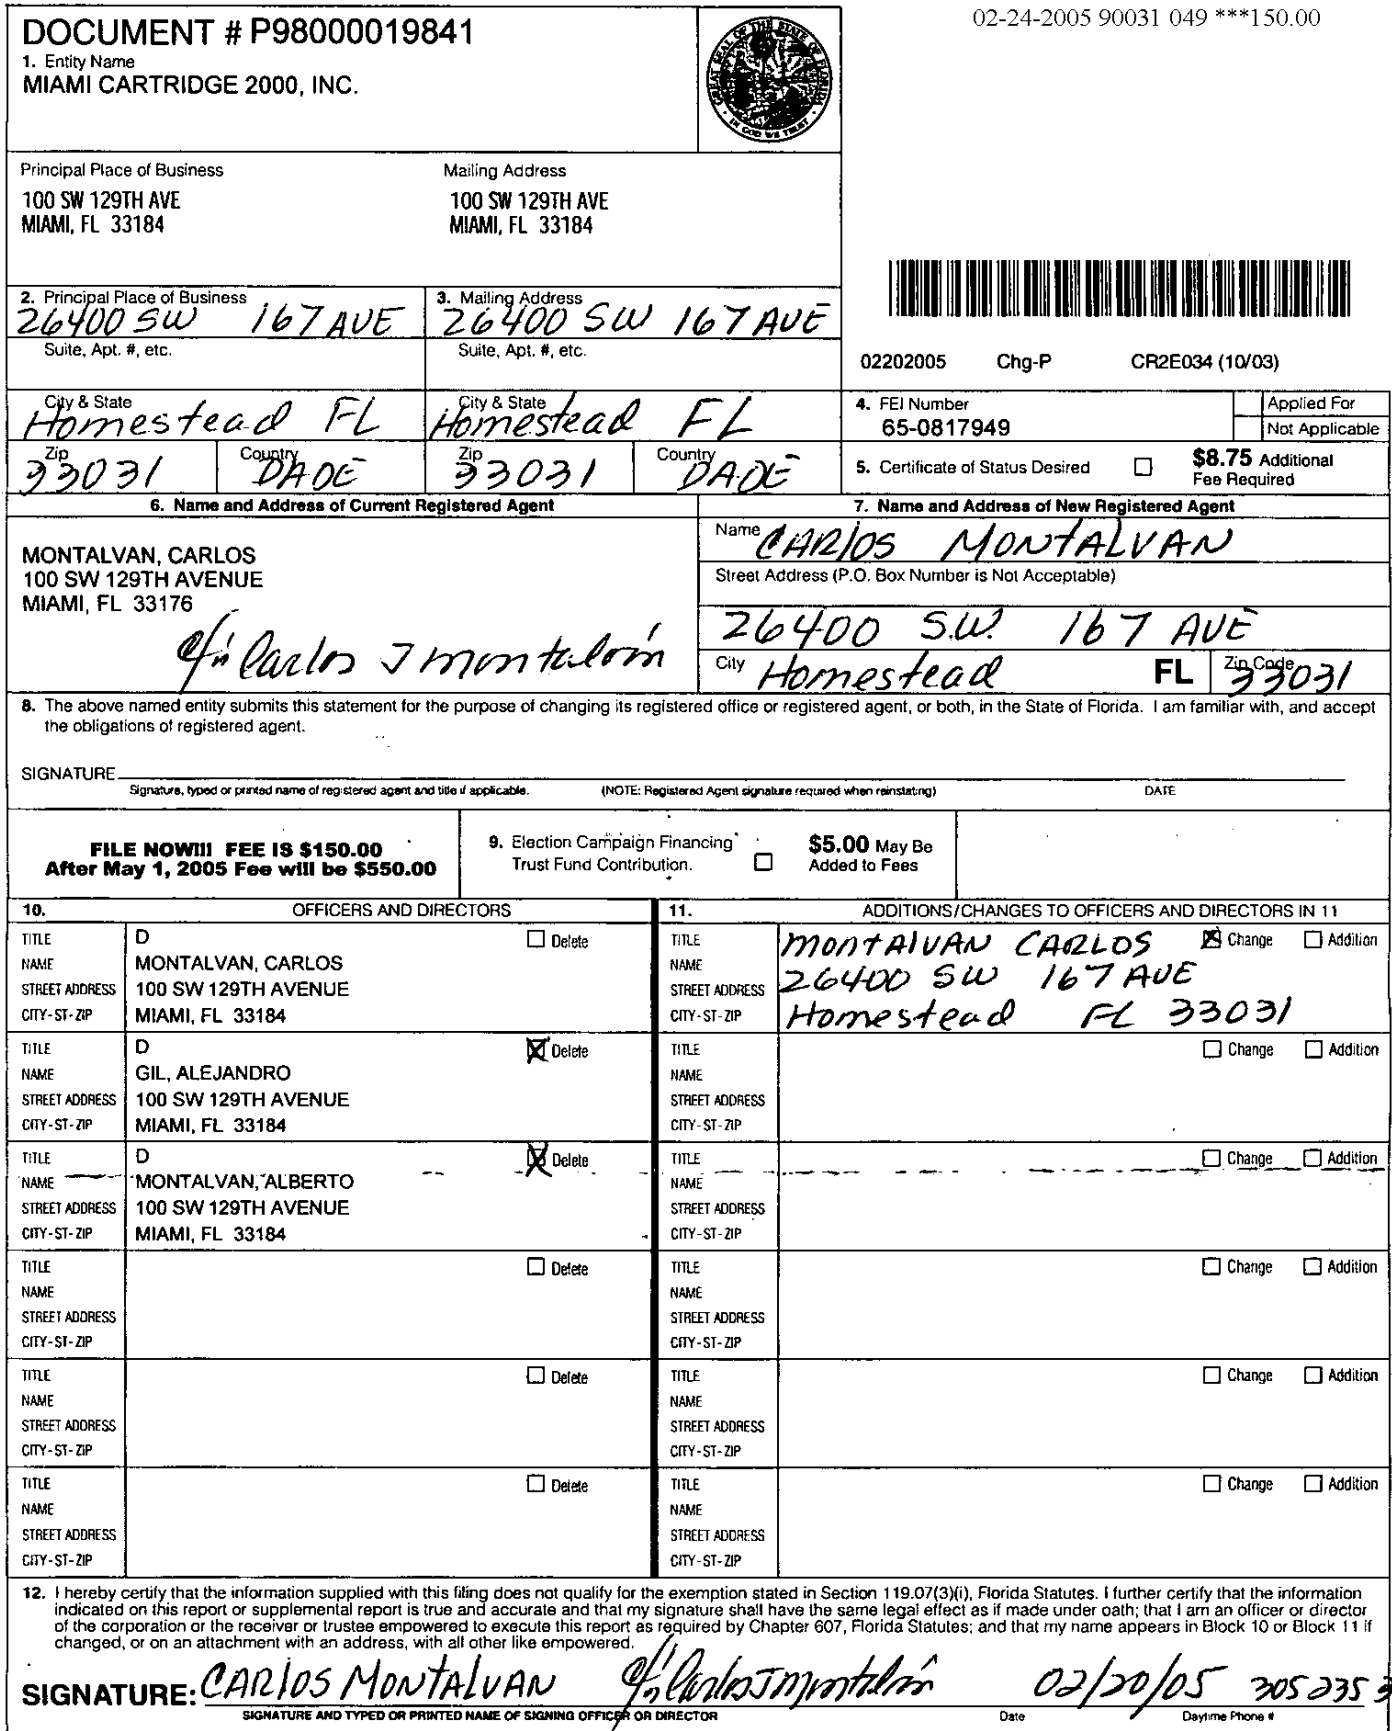 02-24-2005 90031 049 ***150.00
DOCUMENT # P98000019841
1. Entity Name
MIAMI CARTRIDGE 2000, INC.
GREAT SEAL OF THE STATE OF FLORIDA
IN GOD WE TRUST
Principal Place of Business
Mailing Address
100 SW 129TH AVE
MIAMI, FL 33184
100 SW 129TH AVE
MIAMI, FL 33184
2. Principal Place of Business
26400 SW 167 AVE
3. Mailing Address
26400 SW 167 AVE
Suite, Apt. #, etc.
Suite, Apt. #, etc.
02202005 Chg-P CR2E034 (10/03)
City & State
Homestead FL
City & State
Homestead FL
Zip
33031
Country
DADE
Zip
33031
Country
DADE
4. FEI Number
65-0817949
Applied For
Not Applicable
5. Certificate of Status Desired
$8.75 Additional
Fee Required
6. Name and Address of Current Registered Agent
7. Name and Address of New Registered Agent
MONTALVAN, CARLOS
100 SW 129TH AVENUE
MIAMI, FL 33176
Carlos J Montalván
Name CARlOS MONTALVAN
Street Address (P.O. Box Number is Not Acceptable)
26400 S.W. 167 AVE
City Homestead FL Zip Code 33031
8. The above named entity submits this statement for the purpose of changing its registered office or registered agent, or both, in the State of Florida. I am familiar with, and accept
the obligations of registered agent.
SIGNATURE
Signature, typed or printed name of registered agent and title if applicable. (NOTE: Registered Agent signature required when reinstating) DATE
FILE NOW!!! FEE IS $150.00
After May 1, 2005 Fee will be $550.00
9. Election Campaign Financing
Trust Fund Contribution.
$5.00 May Be
Added to Fees
10. OFFICERS AND DIRECTORS
11. ADDITIONS/CHANGES TO OFFICERS AND DIRECTORS IN 11
TITLE D Delete
NAME MONTALVAN, CARLOS
STREET ADDRESS 100 SW 129TH AVENUE
CITY-ST-ZIP MIAMI, FL 33184
TITLE MONTALVAN CARLOS Change Addition
NAME 26400 SW 167 AVE
STREET ADDRESS
CITY-ST-ZIP Homestead FL 33031
TITLE D Delete
NAME GIL, ALEJANDRO
STREET ADDRESS 100 SW 129TH AVENUE
CITY-ST-ZIP MIAMI, FL 33184
TITLE Change Addition
NAME
STREET ADDRESS
CITY-ST-ZIP
TITLE D Delete
NAME MONTALVAN, ALBERTO
STREET ADDRESS 100 SW 129TH AVENUE
CITY-ST-ZIP MIAMI, FL 33184
TITLE Change Addition
NAME
STREET ADDRESS
CITY-ST-ZIP
TITLE Delete
NAME
STREET ADDRESS
CITY-ST-ZIP
TITLE Change Addition
NAME
STREET ADDRESS
CITY-ST-ZIP
TITLE Delete
NAME
STREET ADDRESS
CITY-ST-ZIP
TITLE Change Addition
NAME
STREET ADDRESS
CITY-ST-ZIP
TITLE Delete
NAME
STREET ADDRESS
CITY-ST-ZIP
TITLE Change Addition
NAME
STREET ADDRESS
CITY-ST-ZIP
12. I hereby certify that the information supplied with this filing does not qualify for the exemption stated in Section 119.07(3)(i), Florida Statutes. I further certify that the information
indicated on this report or supplemental report is true and accurate and that my signature shall have the same legal effect as if made under oath; that I am an officer or director
of the corporation or the receiver or trustee empowered to execute this report as required by Chapter 607, Florida Statutes; and that my name appears in Block 10 or Block 11 if
changed, or on an attachment with an address, with all other like empowered.
SIGNATURE: CARlOS MONTALVAN Carlos J Montalván 02/20/05 305 235 3
SIGNATURE AND TYPED OR PRINTED NAME OF SIGNING OFFICER OR DIRECTOR Date Daytime Phone #